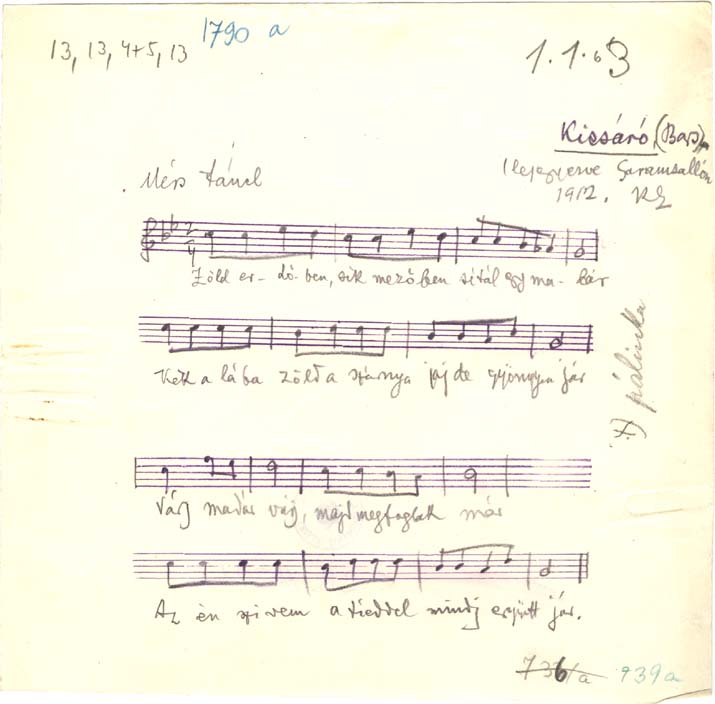 13, 13, 4+5, 13
1790 a
1.1.63
Kicsáró, (Bars),
lejegyezve Garamsallón
1912.
Mérs táncl
2
4
Zöld er- dő- ben, sik mezőben sitál egy ma- dár
Kék a lába zöld a szárnya jáj de gyöngyen jár
Várj madár várj, majd megfoglak már
Az én szivem a tieddel mindj együtt jár.
pálinka
736/a 939a